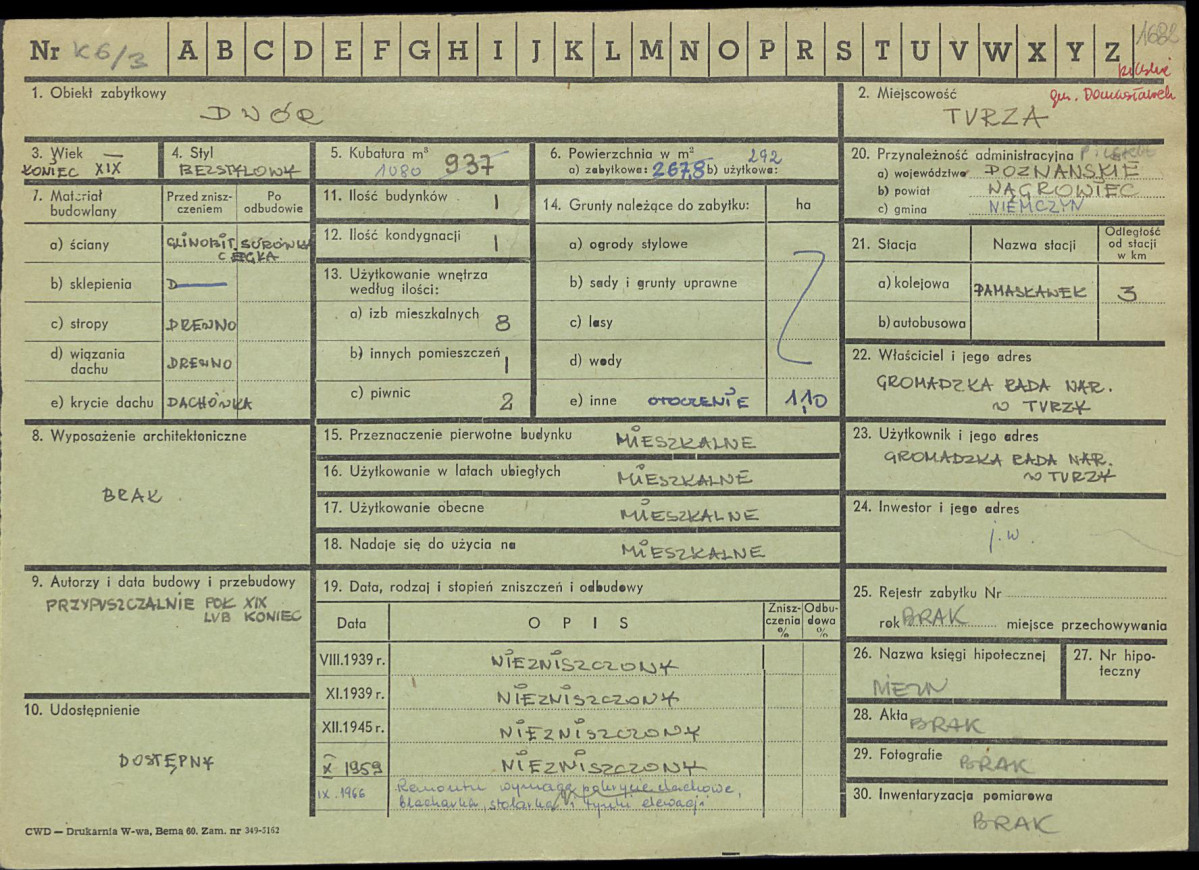 Nr K6/3 A B C D E F G H I J K L M N O P R S T U V W X Y Z 1682
pilskie
gm. Damasławek
1. Obiekt zabytkowy
DWÓR
2. Miejscowość
TURZA
3. Wiek
KONIEC XIX
4. Styl
BEZSTYLOWY
5. Kubatura m³
1080 937
6. Powierzchnia w m² 292
a) zabytkowa: 267,8 b) użytkowa:
7. Materiał budowlany
Przed zniszczeniem
Po odbudowie
a) ściany GLINOBIT. SURÓWKA
CEGŁA
b) sklepienia
c) stropy DREWNO
d) wiązania dachu DREWNO
e) krycie dachu DACHÓWKA
8. Wyposażenie architektoniczne
BRAK
9. Autorzy i data budowy i przebudowy
PRZYPUSZCZALNIE POŁ XIX
LUB KONIEC
10. Udostępnienie
DOSTĘPNY
11. Ilość budynków 1
12. Ilość kondygnacji 1
13. Użytkowanie wnętrza
według ilości:
a) izb mieszkalnych 8
b) innych pomieszczeń 1
c) piwnic 2
14. Grunty należące do zabytku: ha
a) ogrody stylowe
b) sady i grunty uprawne
c) lasy
d) wody
e) inne OTOCZENIE 1,10
15. Przeznaczenie pierwotne budynku MIESZKALNE
16. Użytkowanie w latach ubiegłych MIESZKALNE
17. Użytkowanie obecne MIESZKALNE
18. Nadaje się do użycia na MIESZKALNE
19. Data, rodzaj i stopień zniszczeń i odbudowy
Data
O P I S
Zniszczenia %
Odbudowa %
VIII.1939 r. NIEZNISZCZONY
XI.1939 r. NIEZNISZCZONY
XII.1945 r. NIEZNISZCZONY
X 1959 NIEZNISZCZONY
IX.1966 Remontu wymaga pokrycie dachowe,
blacharka, stolarka i tynki elewacji
20. Przynależność administracyjna
a) województwo POZNAŃSKIE
b) powiat WĄGROWIEC
c) gmina NIEMCZYN
21. Stacja
Nazwa stacji
Odległość od stacji w km
a) kolejowa DAMASŁAWEK 3
b) autobusowa
22. Właściciel i jego adres
GROMADZKA RADA NAR.
w TURZY
23. Użytkownik i jego adres
GROMADZKA RADA NAR.
w TURZY
24. Inwestor i jego adres
j.w.
25. Rejestr zabytku Nr
rok BRAK miejsce przechowywania
26. Nazwa księgi hipotecznej
27. Nr hipoteczny
28. Akta BRAK
29. Fotografie BRAK
30. Inwentaryzacja pomiarowa
BRAK
CWD — Drukarnia W-wa, Bema 60. Zam. nr 349-5162